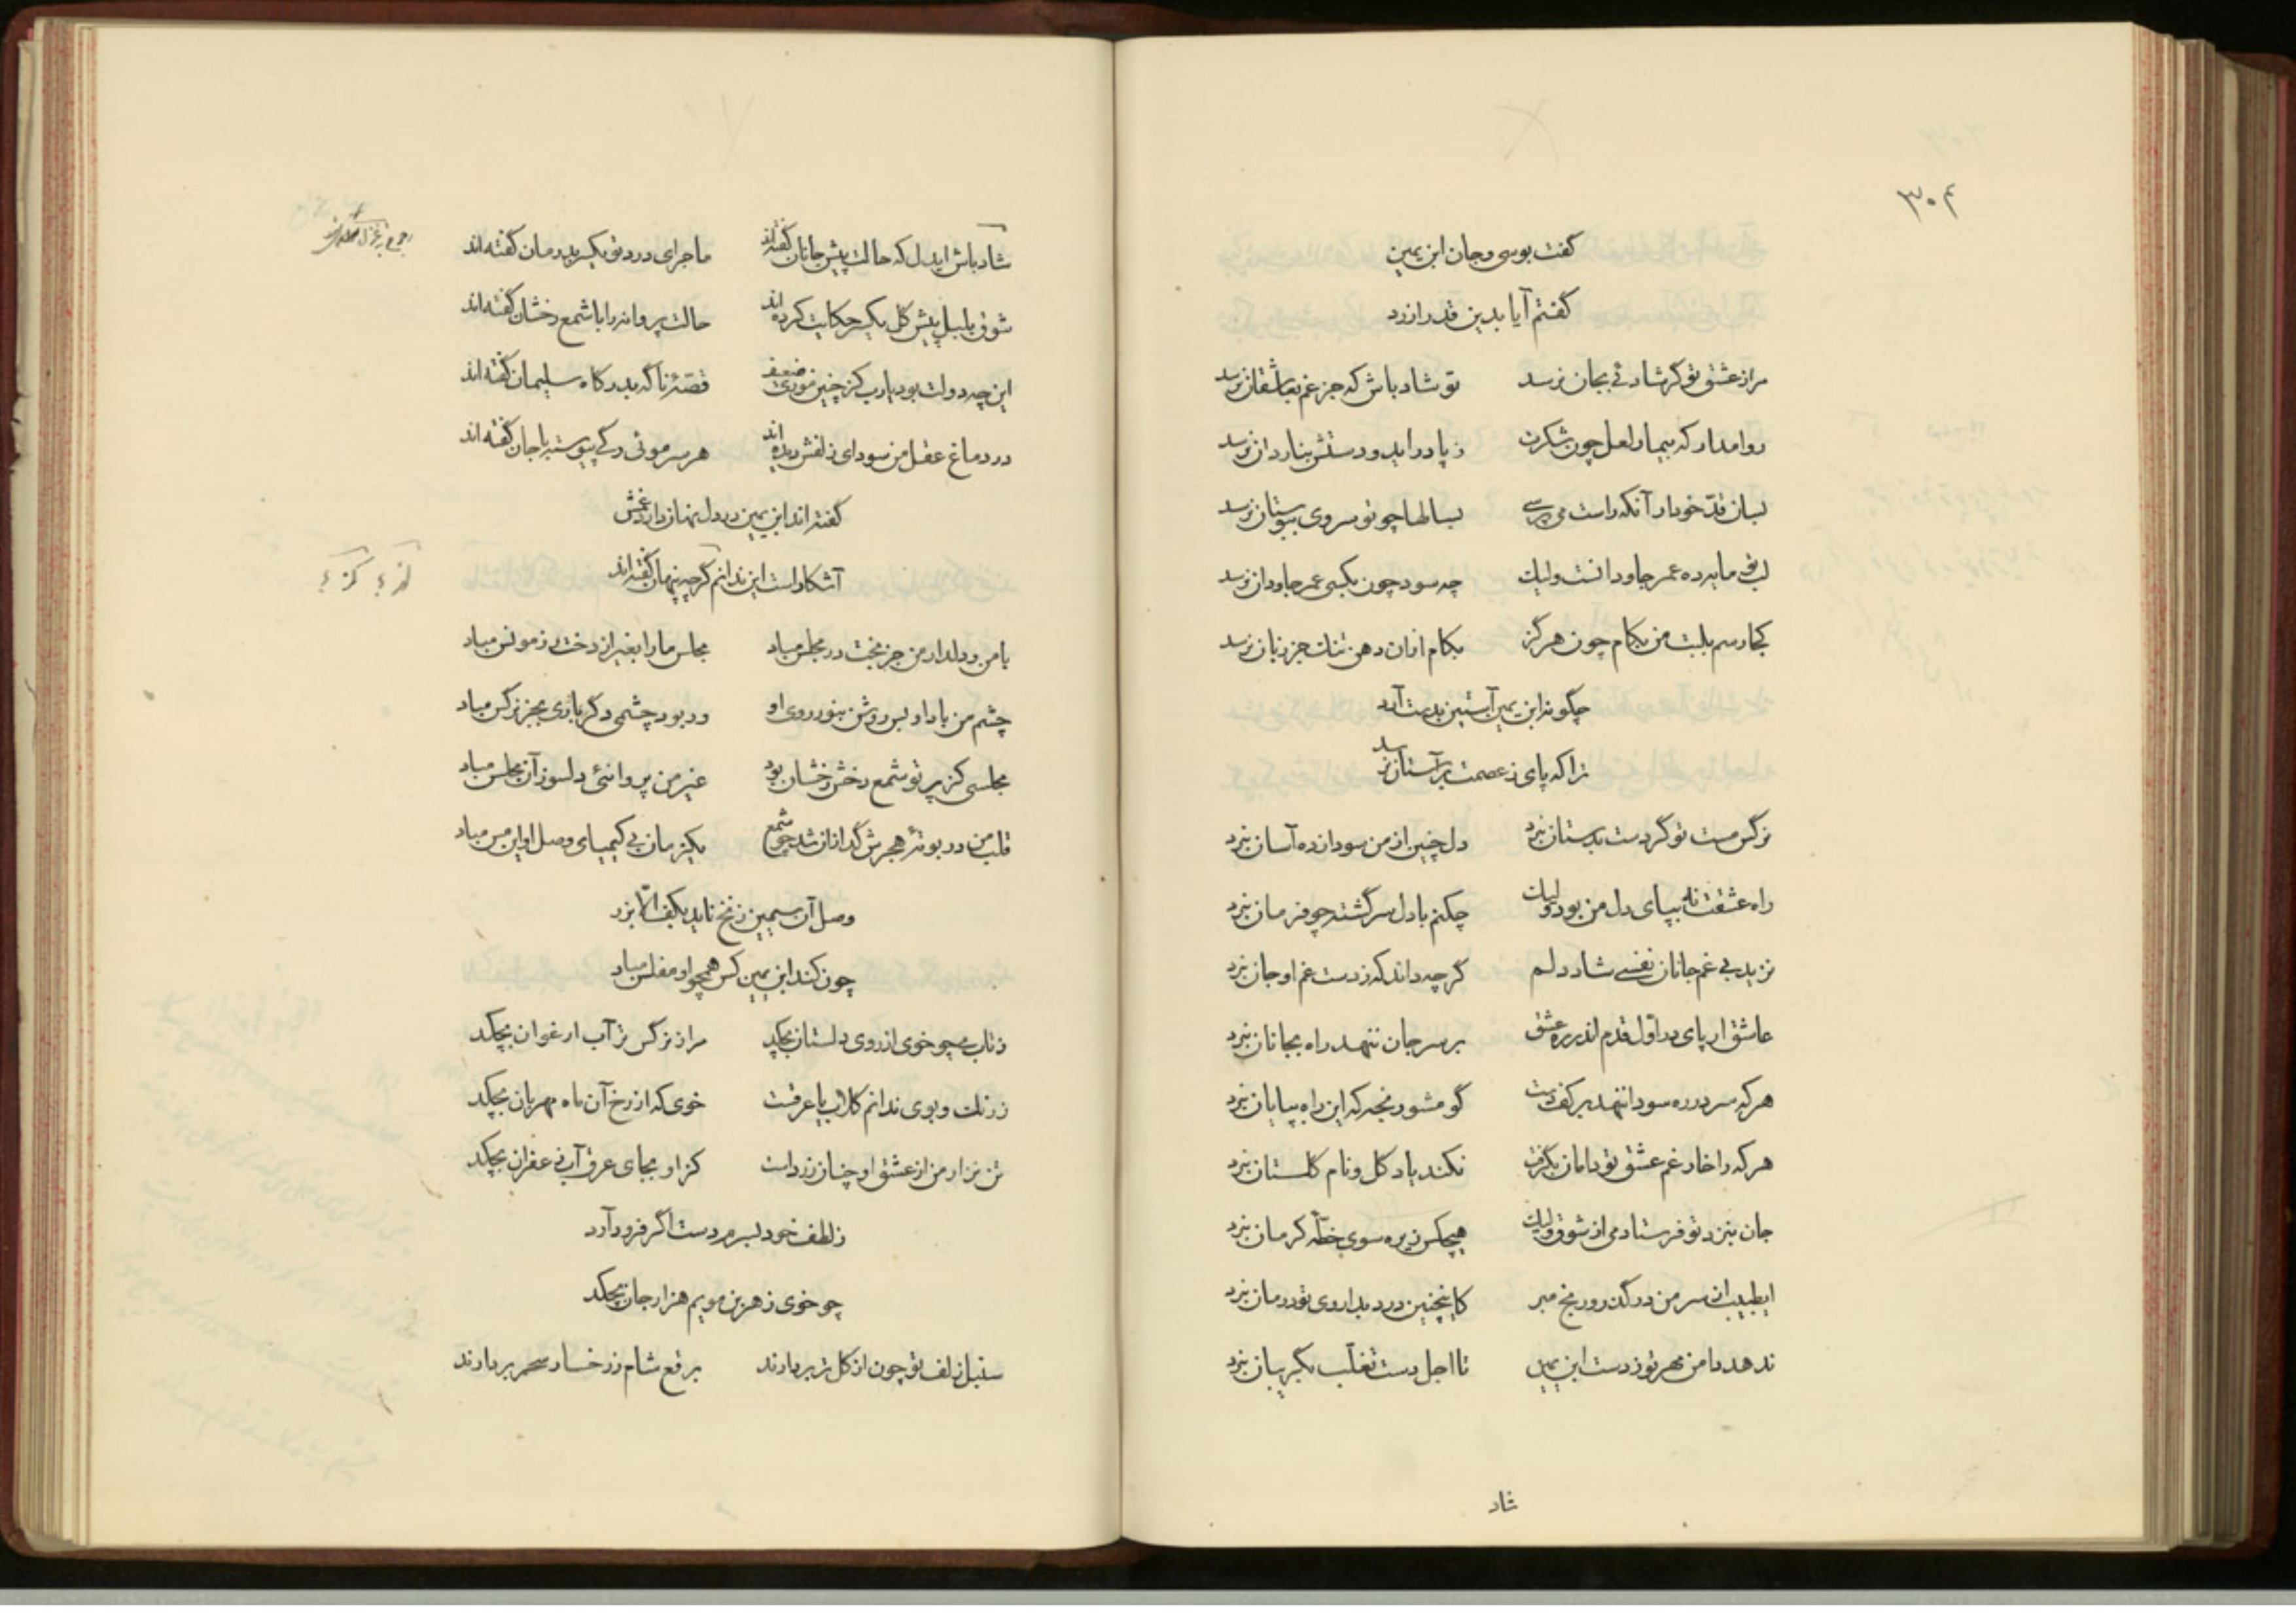 ۳۰۴
گفت بوسی و جان ابن یمین
گفتم آیا بدین قدر ارزد
مرا ز عشق تو گر شادئی بجان نرسد تو شاد باش که جز غم بعاشقان نرسد
روا مدار که بیمار لعل چون شکرت ز پا درآید و دستش بناردان نرسد
بسان قدّ خود ار آنکه راست می‌پرسی بسالها چو تو سروی ببوستان نرسد
لب تو مایه ده عمر جاودانست ولیک چه سود چون بکسی عمر جاودان نرسد
کجا رسم بلبت من بکام چون هرگز بکام ازان دهن تنگ جز زبان نرسد
چگونه ابن یمین آستین بدست آرد
ترا که پای ز عصمت بر آستان نرسد
نرگس مست تو گر دست بدستان نبرد دل چنین از من سودازده آسان نبرد
راه عشقت نه بپای دل من بود ولیک چکنم با دل سرگشته چو فرمان نبرد
نزید بی غم جانان نفسی شاد دلم گر چه داند که ز دست غم او جان نبرد
عاشق ار پای در اوّل قدم اندر ره عشق بر سر جان ننهد راه بجانان نبرد
هر که سر در ره سودا ننهد بر کف دست گو مشو رنجه که این راه بپایان نبرد
هر که را خار غم عشق تو دامان بگرفت نکند یاد گل و نام گلستان نبرد
جان بنزد تو فرستادمی از شوق ولیک هیچکس زیره سوی خطّه کرمان نبرد
ای طبیب از سر من در گذر و رنج مبر کاینچنین درد بداروی تو درمان نبرد
ندهد دامن مهر تو ز دست ابن یمین تا اجل دست تغلّب بگریبان نبرد
شاد
شاد باش ایدل که حالت پیش جانان گفته‌اند ماجرای درد تو یکسر بدرمان گفته‌اند
شوق بلبل پیش گل یکسر حکایت کرده‌اند حالت پروانه را با شمع رخشان گفته‌اند
این چه دولت بود یارب کز چنین موری ضعیف قصّهٔ ناگه بدرگاه سلیمان گفته‌اند
در دماغ عقل من سودای زلفش دیده‌اند هر سر موئی که پیوسته با جان گفته‌اند
گفته‌اند ابن یمین در دل نهان دارد غمش
آشکار است این ندانم گر چه پنهان گفته‌اند
با من و دلدار من جز بخت در مجلس مباد مجلس ما را بغیر از دخت رز مونس مباد
چشم من باد او بس روشن بنور روی او ور بود چشمی دگر باری بجز نرگس مباد
مجلسی کز پرتو شمع رخش رخشان بود غیر من پروانئی دلسوز آن مجلس مباد
قلب من در بوتهٔ هجرش گدازان شد چو شمع یکزمان بی کیمیای وصل او این مس مباد
وصل آن سیمین زنخ ناید بکف الّا بزر
چون کند ابن یمین کس همچو او مفلس مباد
ز تاب می چو خوی از روی دلستان بچکد مرا ز نرگس تر آب ارغوان بچکد
ز رنگ و بوی ندانم گلاب یا عرقست خوی که از رخ آن ماه مهربان بچکد
تن نزار من از عشق او چنان زرد است کز او بجای عرق آب زعفران بچکد
ز لطف خود بسرم دست اگر فرود آرد
چو خوی ز هر بن مویم هزار جان بچکد
سنبل زلف تو چون از گل تر بردارند برقع شام ز رخسار سحر بردارند